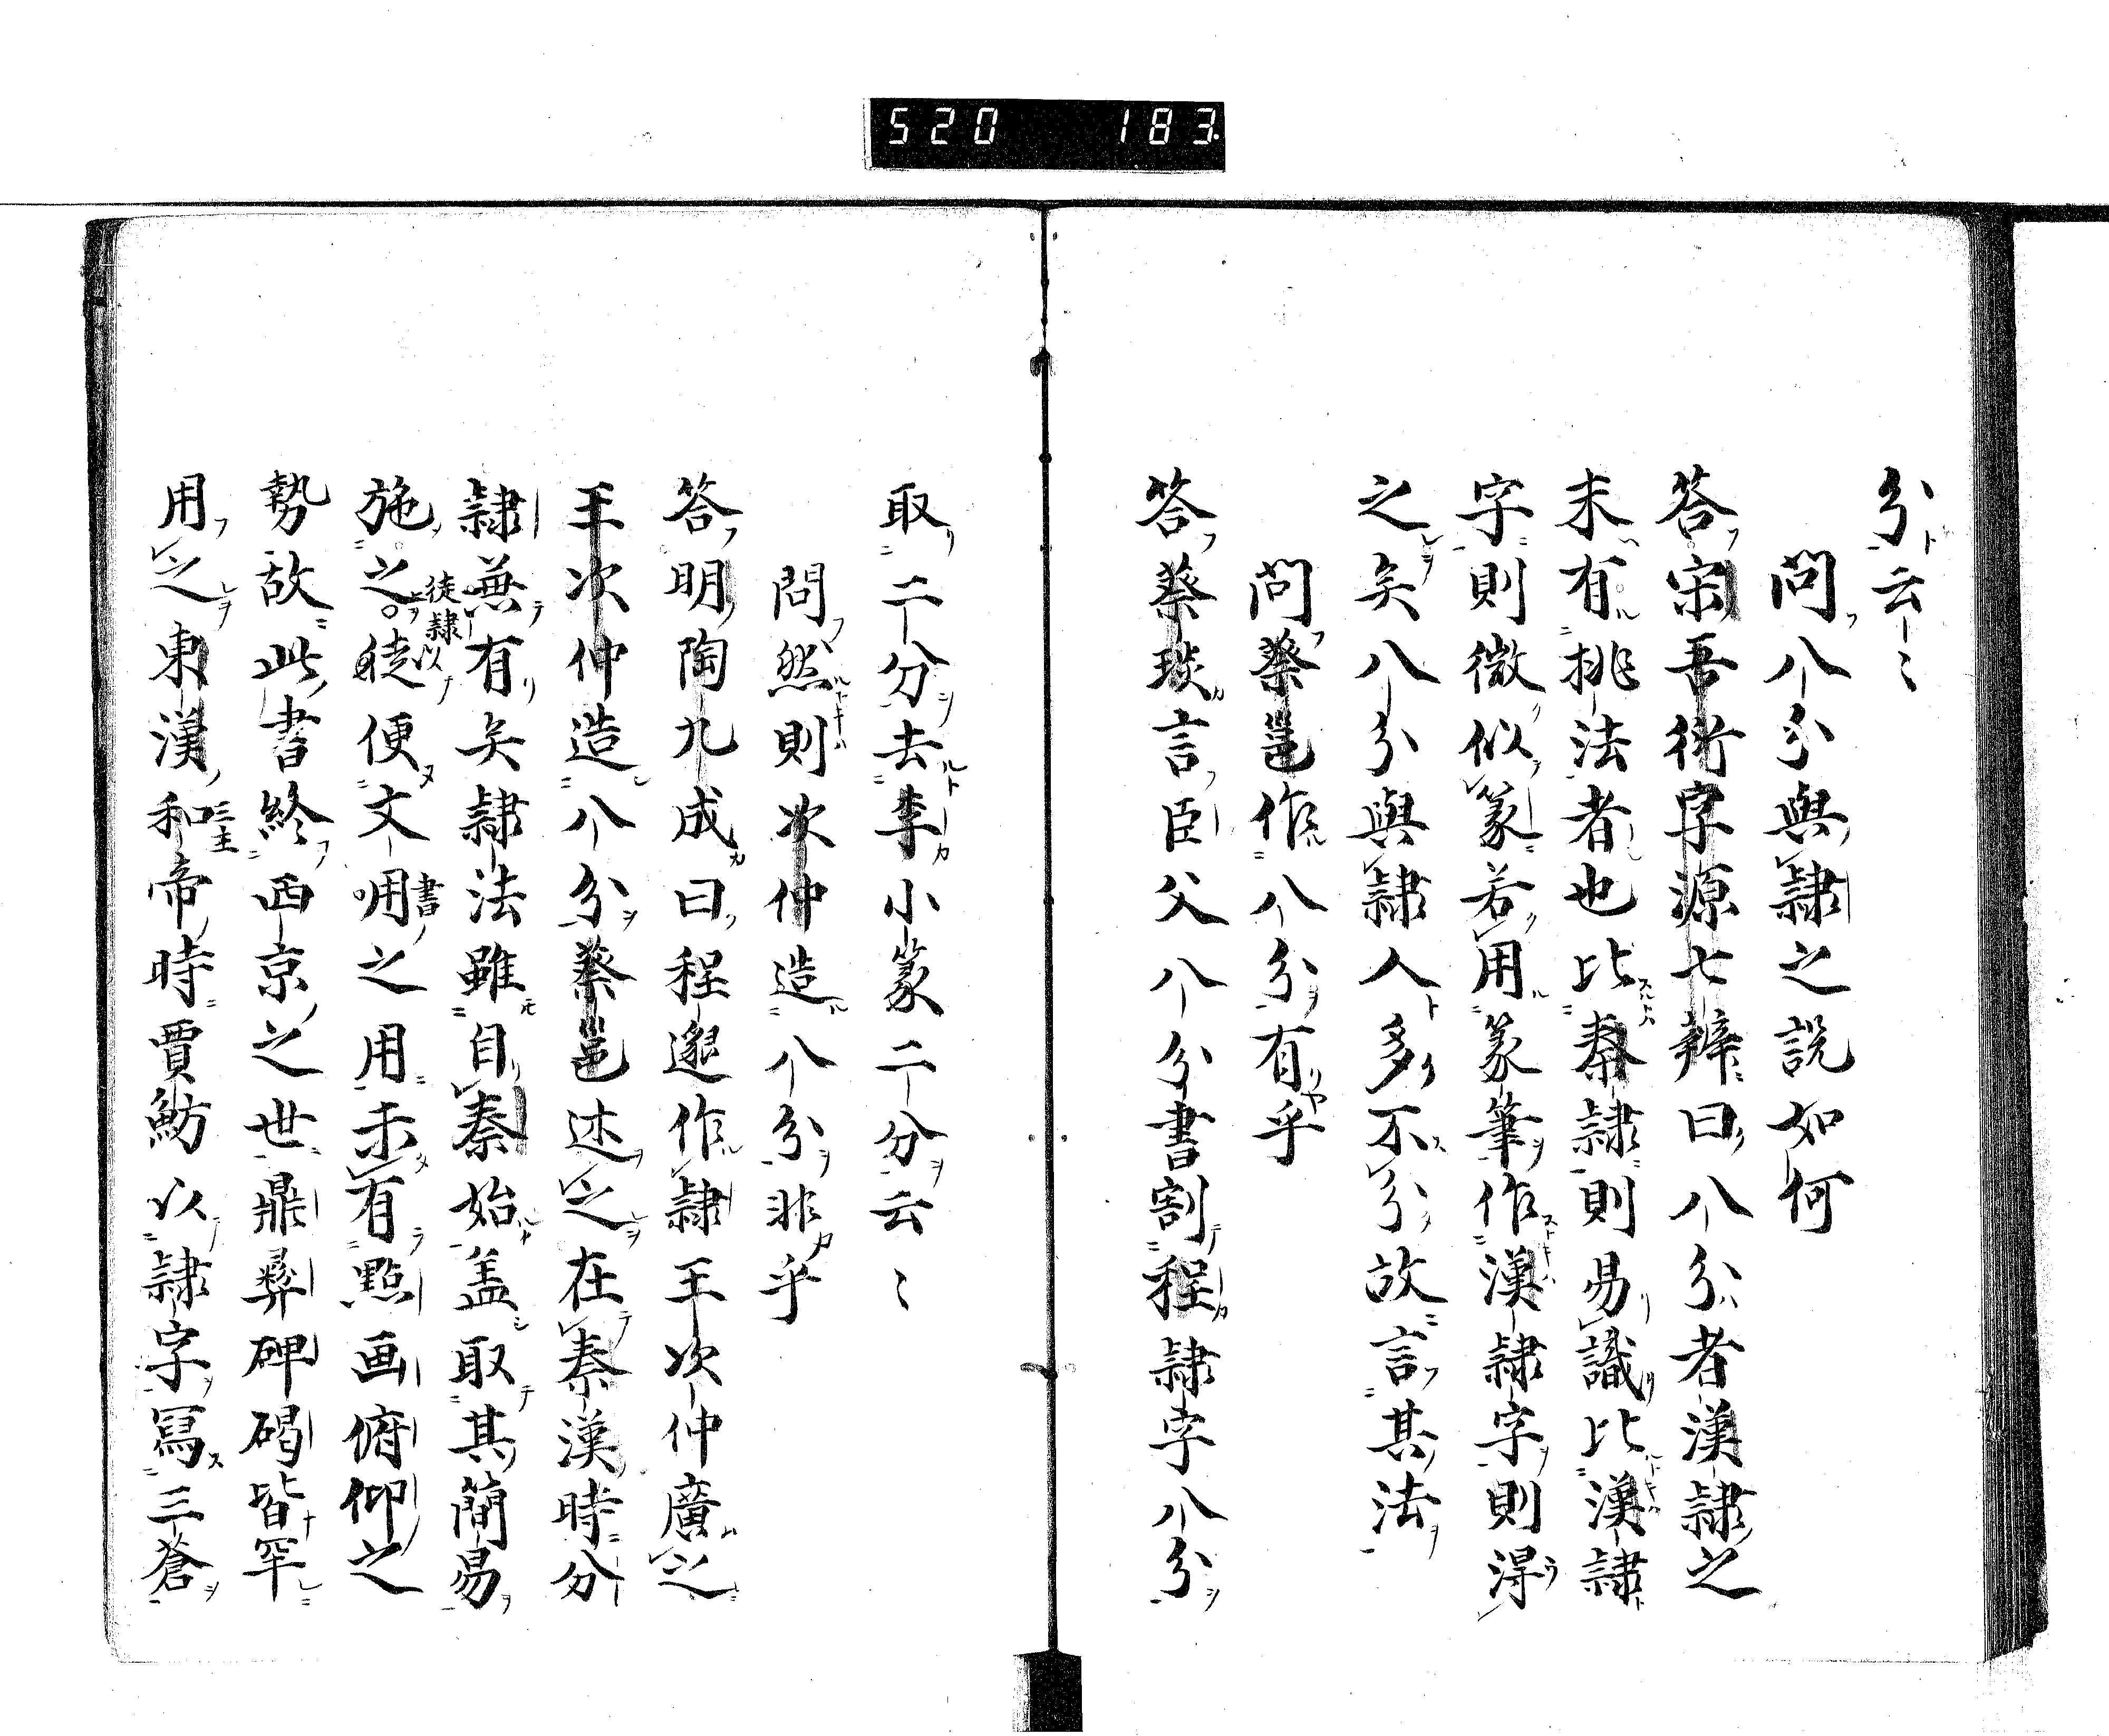 520 183
分云〻
問八分與隷之説如何
答宋吾衍字源七辨曰八分者漢隷之
未有挑法者也比秦隷則易識比漢隷
字則微似篆若用篆筆作漢隷字則得
之矣八分與隷人多不分故言其法
問蔡邕作八分有乎
答蔡琰言臣父八分書割程隷字八分
取二分去李小篆二分云〻
問然則次仲造八分非乎
答明陶九成曰程邈作隷王次仲廣之
王次仲造八分蔡邕述之在秦漢時分
隷兼有矣隷法雖自秦始盖取其簡易
施之徒隷以便文書之用未有點画俯仰之
勢故此書終西京之世鼎彛碑碣皆罕
用之東漢和帝時賈魴以隷字冩三蒼